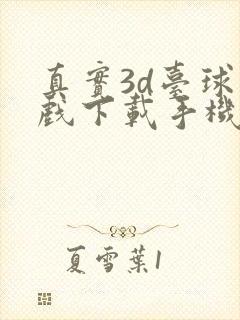 真實3d臺球
戲下載手機
夏雪葉1